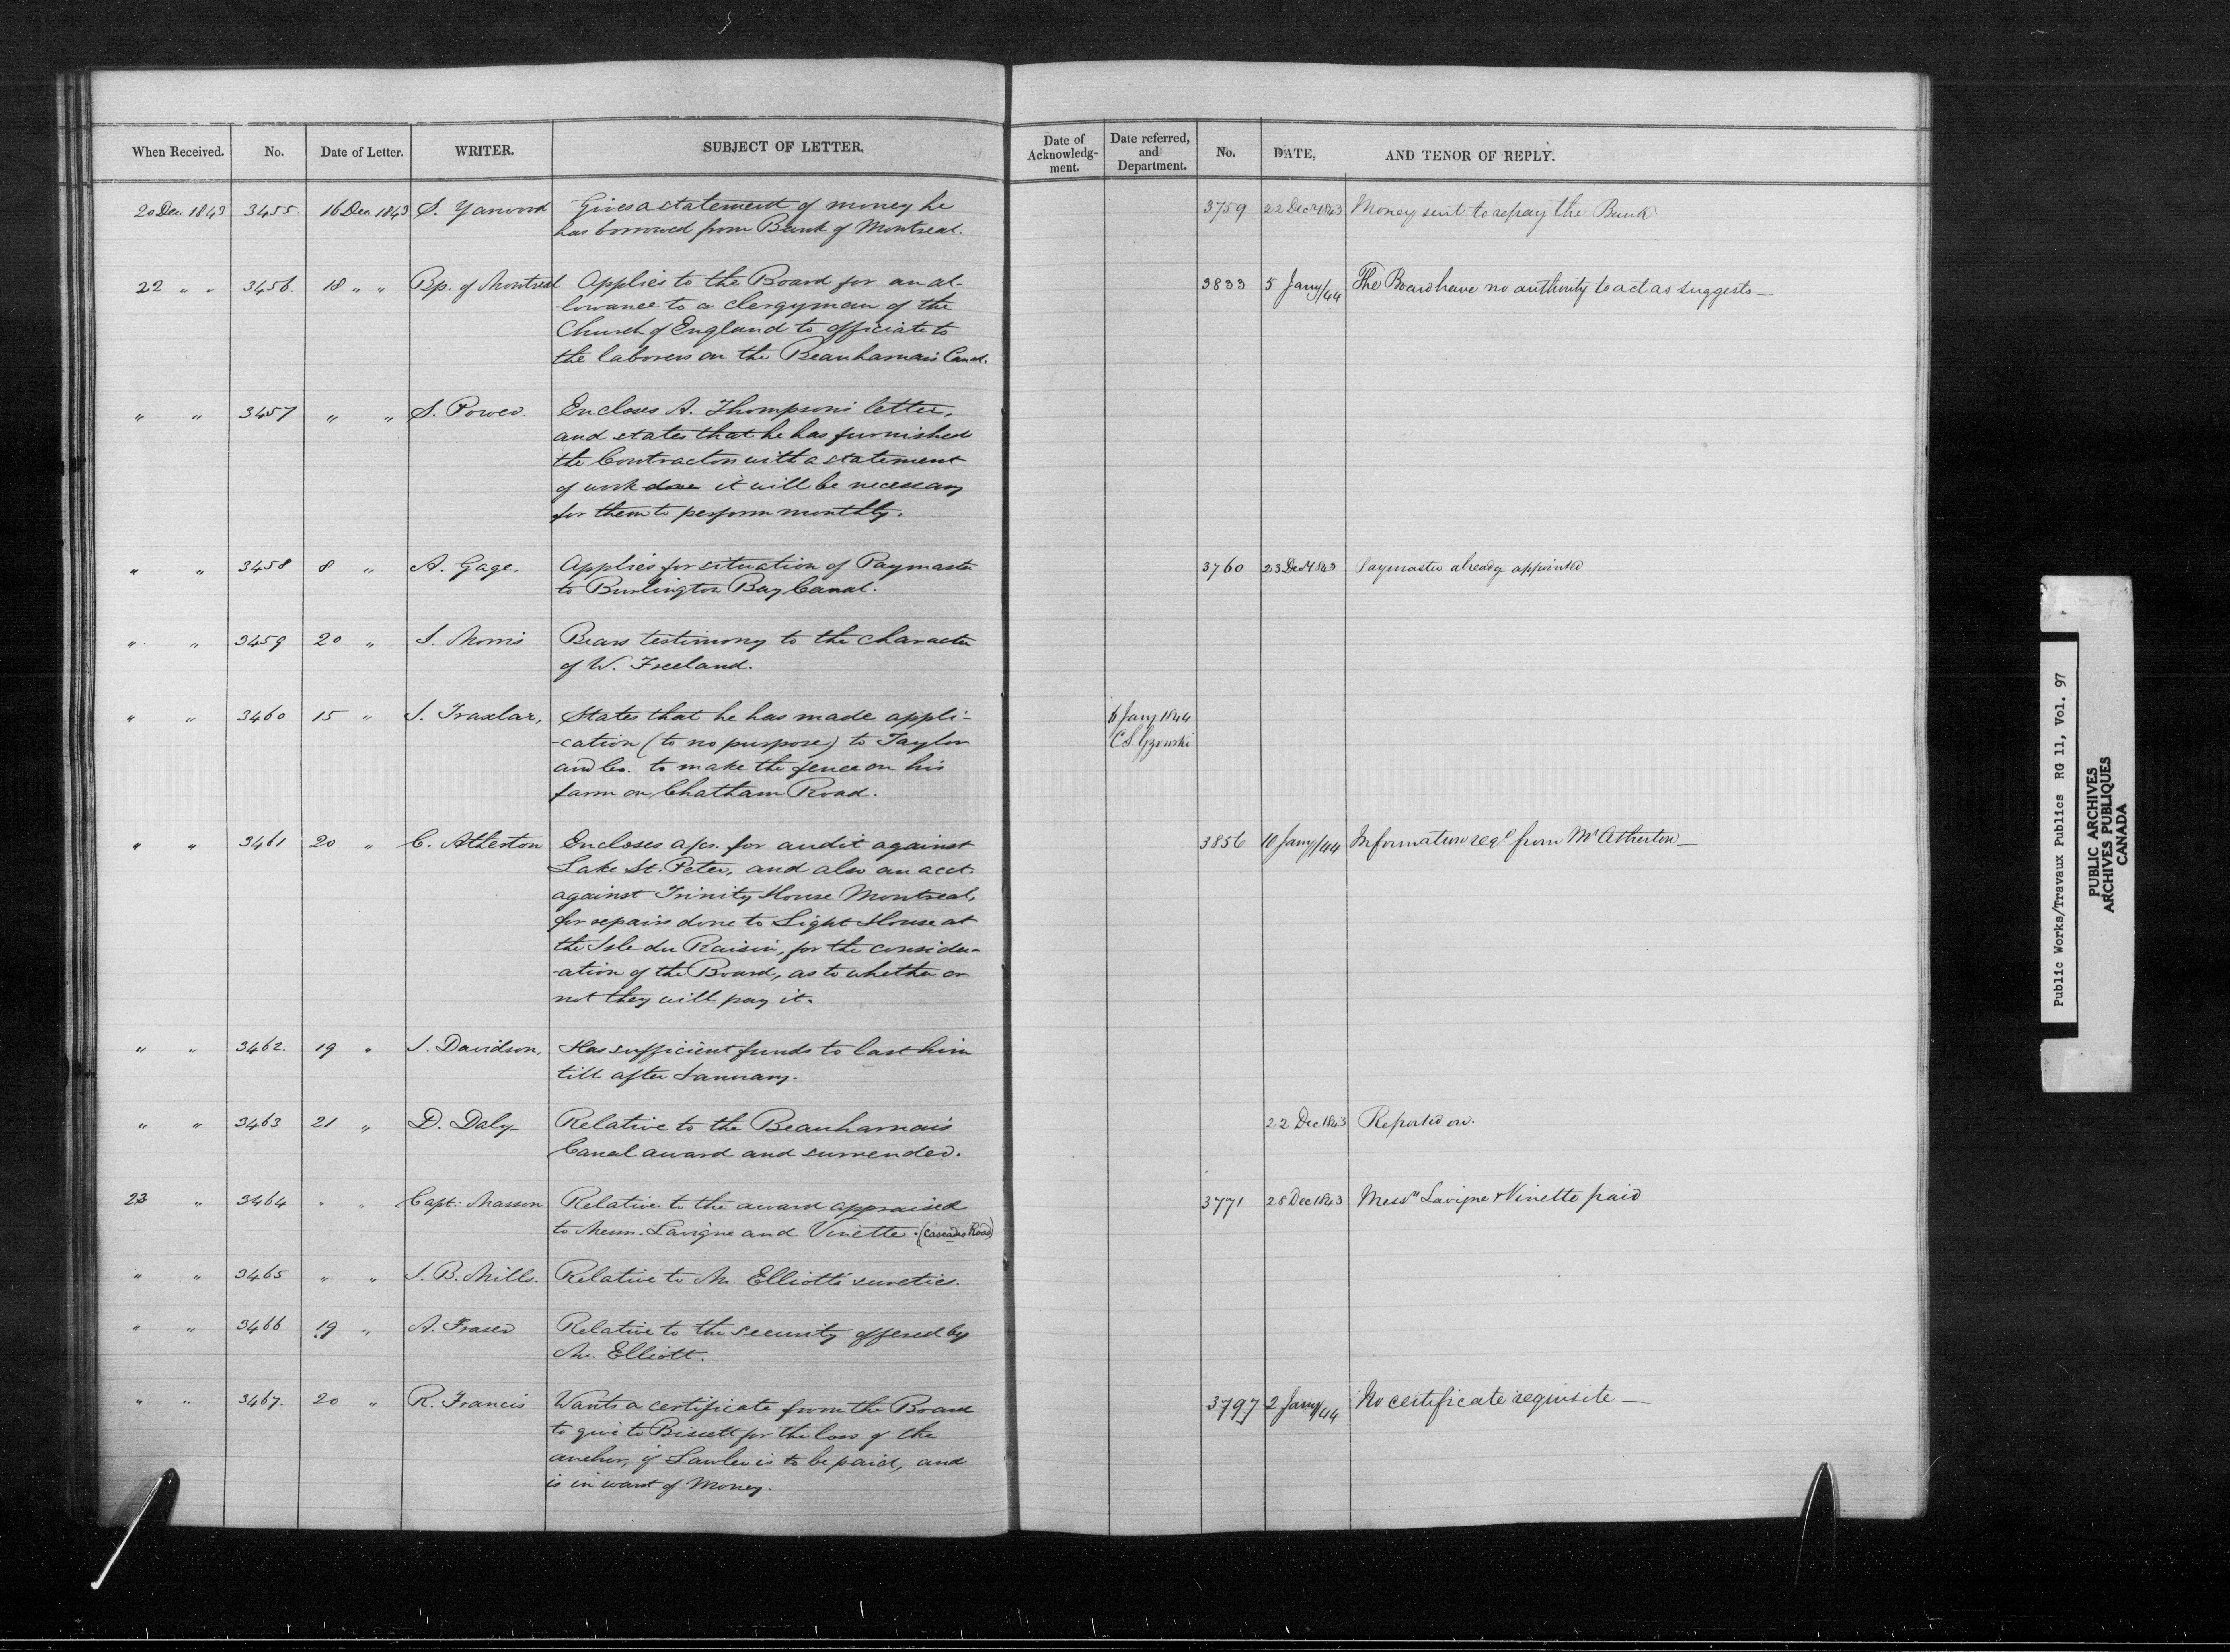 When Received. No. Date of Letter. WRITER. SUBJECT OF LETTER.
20 Dec 1843 3455. 16 Dec 1843 S. Yarwood Gives a statement of money he
has borrowed from Bank of Montreal.
22 " " 3456. 18 " " Bp. of Montreal Applies to the Board for an al-
-lowance to a clergyman of the
Church of England to officiate to
the laborers on the Beauharnais Canal.
" " 3457 " " S. Power. Encloses A. Thompson's letter,
and states that he has furnished
the Contractors with a statement
of work done it will be necessary
for them to perform monthly.
" " 3458 8 " A. Gage. Applies for situation of Paymaster
to Burlington Bay Canal.
" " 3459 20 " J. Morris Bears testimony to the character
of W. Freeland.
" " 3460 15 " J. Traxlar, States that he has made appli-
-cation (to no purpose) to Taylor
and Co. to make the fence on his
farm on Chatham Road.
" " 3461 20 " C. Atherton Encloses a/cs. for audit against
Lake St. Peter, and also an acct.
against Trinity House Montreal,
for repairs done to Light House at
the Isle du Raisin, for the consider-
-ation of the Board, as to whether or
not they will pay it.
" " 3462. 19 " J. Davidson, Has sufficient funds to last him
till after January.
" " 3463 21 " D. Daly Relative to the Beauharnais
Canal award and surrender.
23 " 3464 " " Capt. Masson Relative to the award appraised
to Messrs. Lavigne and Vinette. (Cascades Road)
" " 3465 " " J. B. Mills. Relative to Mr. Elliott's sureties.
" " 3466 19 " A. Fraser Relative to the security offered by
Mr. Elliott.
" " 3467. 20 " R. Francis Wants a certificate from the Board
to give to Bissett for the loss of the
anchor, if Lawler is to be paid, and
is in want of Money.
Date of Acknowledg-ment. Date referred, and Department. No. DATE, AND TENOR OF REPLY.
3759 22 Decr 1843 Money sent to repay the Bank
3833 5 Jany/44 The Board have no authority to act as suggests —
3760 23 Decr 1843 Paymaster already appointed
6 Jany 1844
C.S. Gzowski
3856 10 Jany/44 Information reqd from Mr Atherton —
22 Dec 1843 Reported on.
3771 28 Dec 1843 Messrs Lavigne & Vinette paid
3797 2 Jany/44 No certificate requisite —
Public Works/Travaux Publics RG 11, Vol. 97
PUBLIC ARCHIVES
ARCHIVES PUBLIQUES
CANADA